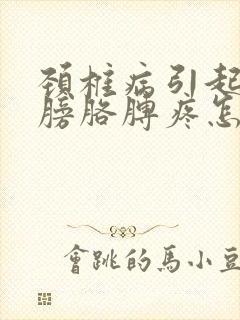 颈椎病引起
膀胳脾疼怎
會跳的馬小豆